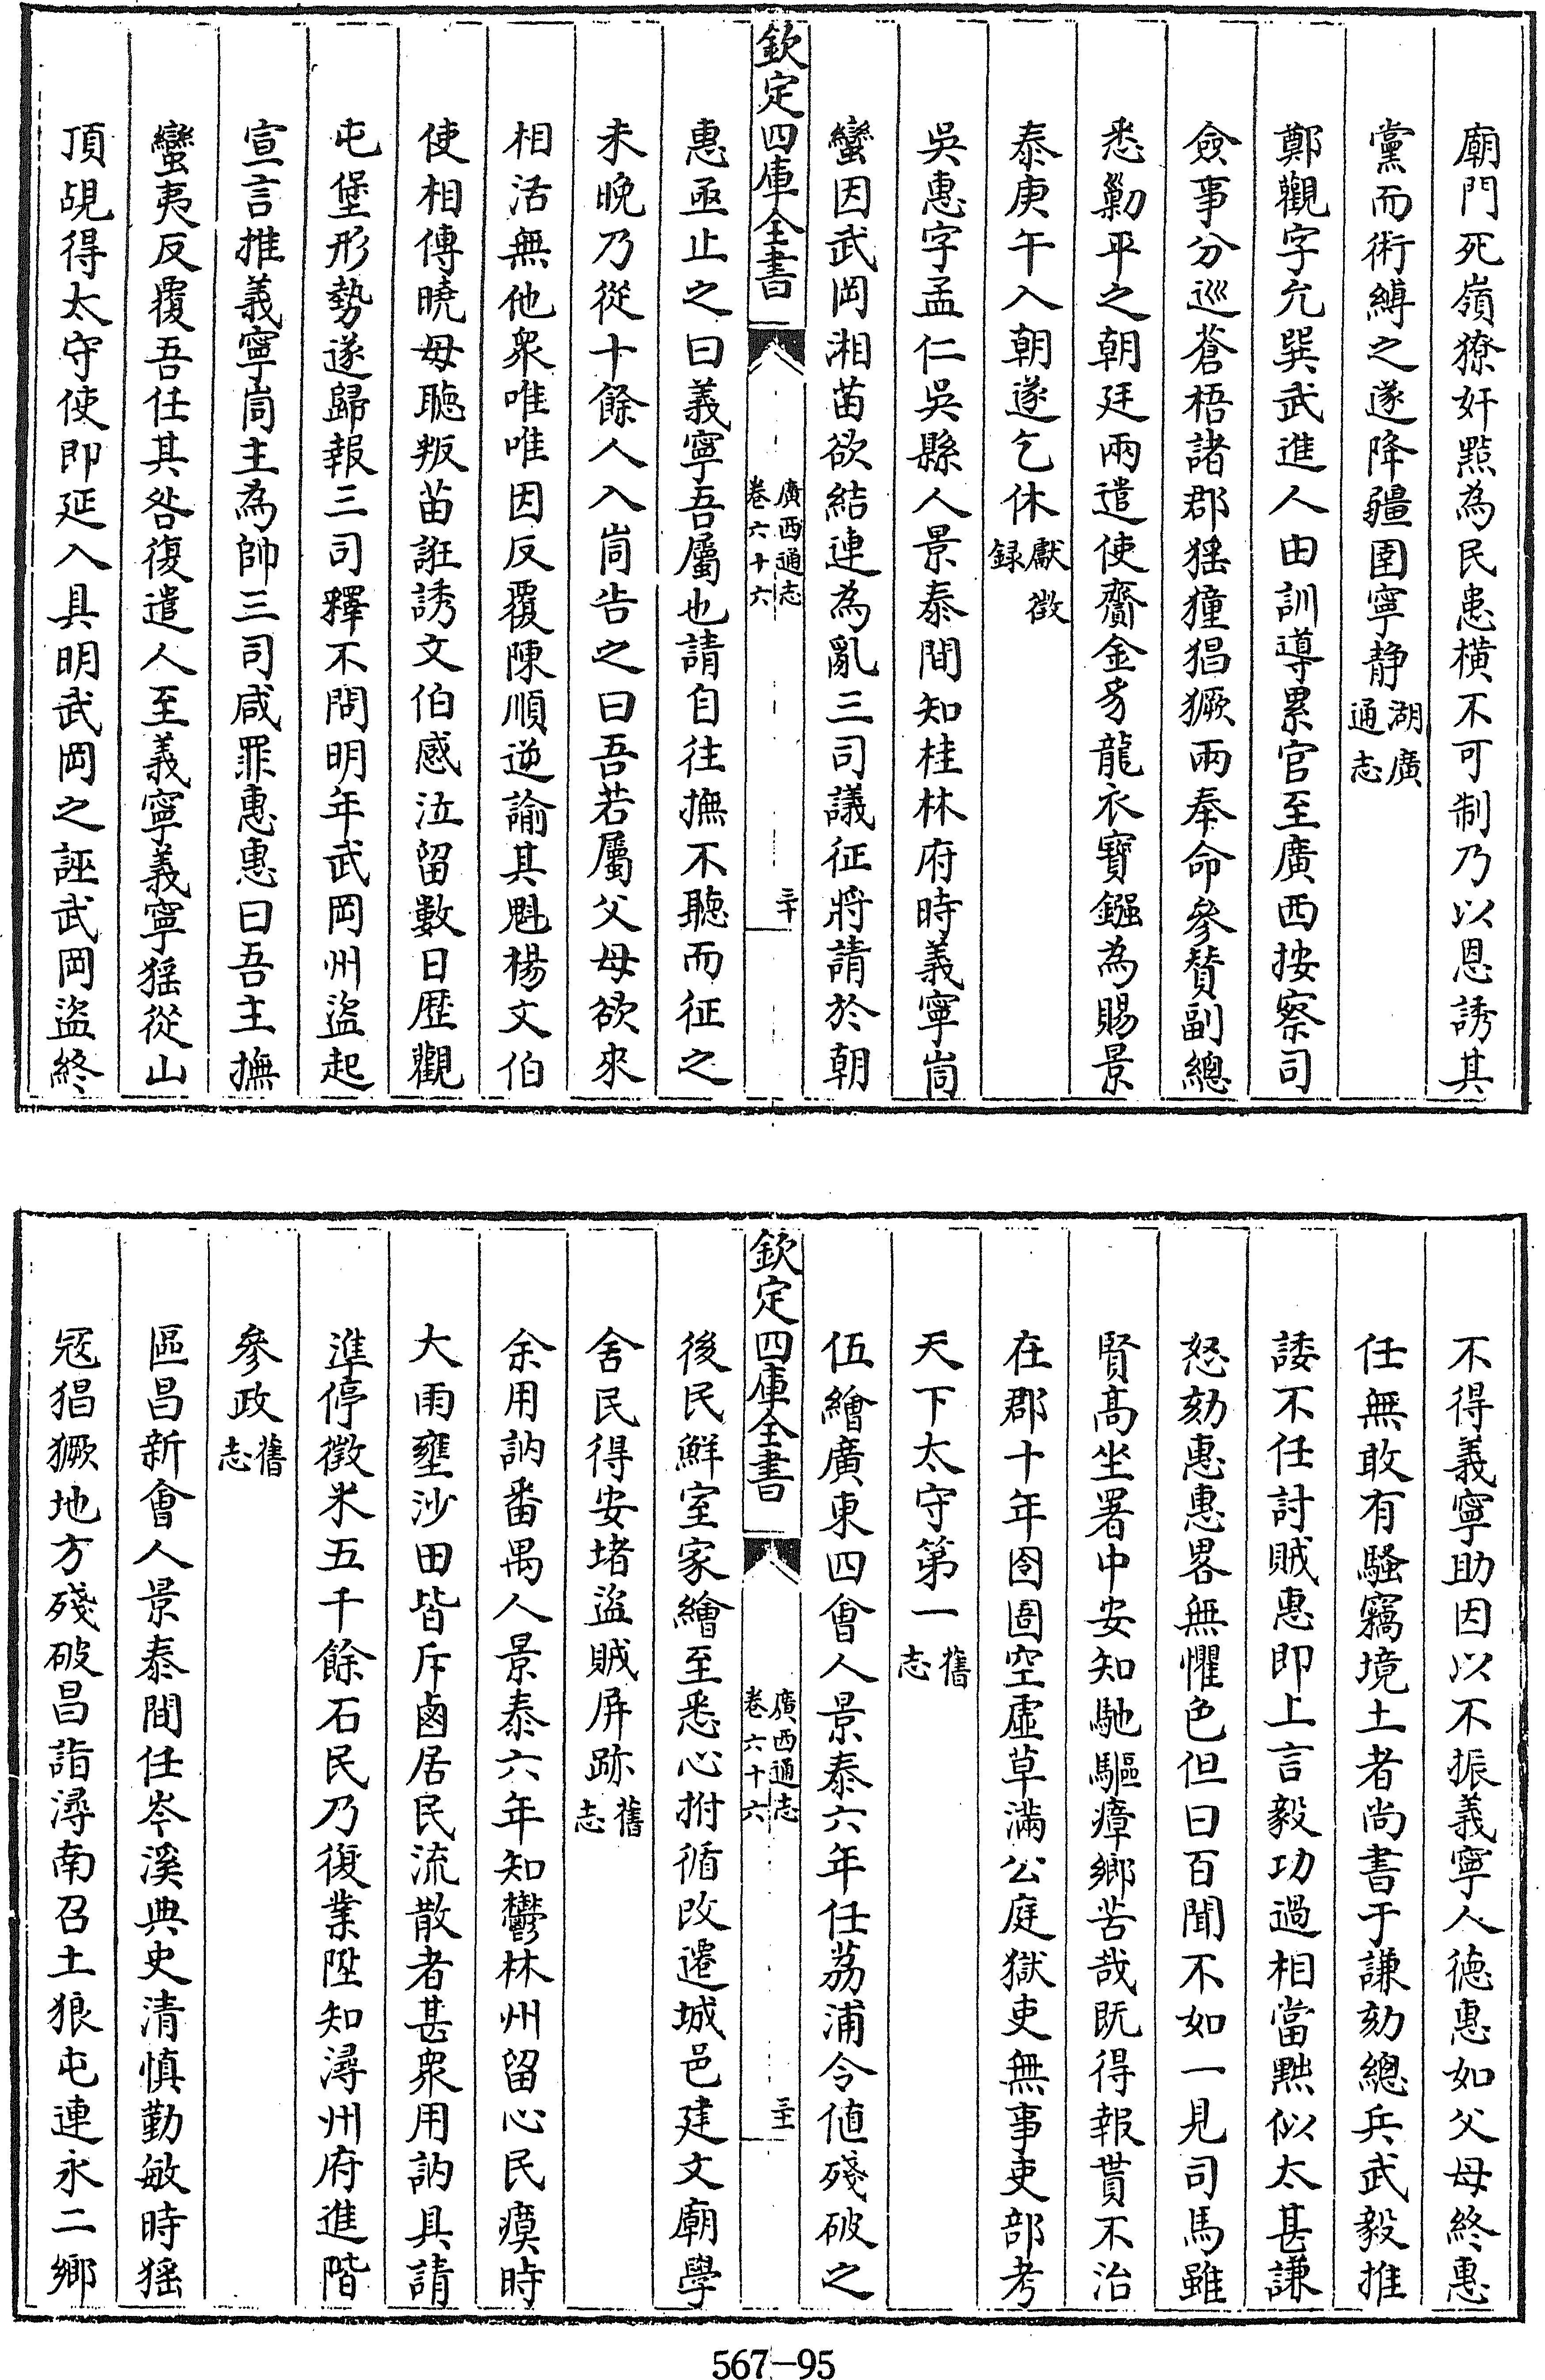 廟門死嶺獠奸㸃為民患橫不可制乃以恩誘其
黨而術縛之遂降疆圉寧静湖廣
通志
鄭觀字允巽武進人由訓導累官至廣西按察司
僉事分巡蒼梧諸郡猺獞猖獗兩奉命參贊副總
悉勦平之朝廷兩遣使齎金豸龍衣寶鏹為賜景
泰庚午入朝遂乞休獻徵
録
吳惠字孟仁吳縣人景泰間知桂林府時義寧峝
蠻因武岡湘苗欲結連為亂三司議征將請於朝
欽定四庫全書
廣西通志
卷六十六
三十
惠亟止之曰義寧吾屬也請自往撫不聽而征之
未晚乃從十餘人入峝告之曰吾若屬父母欲來
相活無他衆唯唯因反覆陳順逆諭其魁楊文伯
使相傳曉毋聽叛苗誑誘文伯感泣留數日歷觀
屯堡形勢遂歸報三司釋不問明年武岡州盜起
宣言推義寧峝主為帥三司咸罪惠惠曰吾主撫
蠻夷反覆吾任其咎復遣人至義寧義寧猺從山
頂覘得太守使即延入具明武岡之誣武岡盜終
不得義寧助因以不振義寧人徳惠如父母終惠
任無敢有騷竊境土者尚書于謙劾總兵武毅推
諉不任討賊惠即上言毅功過相當黜似太甚謙
怒劾惠惠畧無懼色但曰百聞不如一見司馬雖
賢高坐署中安知馳驅瘴鄉苦哉既得報貰不治
在郡十年囹圄空虛草滿公庭獄吏無事吏部考
天下太守第一舊
志
伍繪廣東四會人景泰六年任荔浦令值殘破之
欽定四庫全書
廣西通志
卷六十六
三十一
後民鮮室家繪至悉心拊循改遷城邑建文廟學
舍民得安堵盜賊屏跡舊
志
余用訥番禺人景泰六年知鬱林州留心民瘼時
大雨壅沙田皆斥鹵居民流散者甚衆用訥具請
準停徵米五千餘石民乃復業陞知潯州府進階
參政舊
志
區昌新會人景泰間任岑溪典史清慎勤敏時猺
冦猖獗地方殘破昌詣潯南召土狼屯連永二鄉
567—95